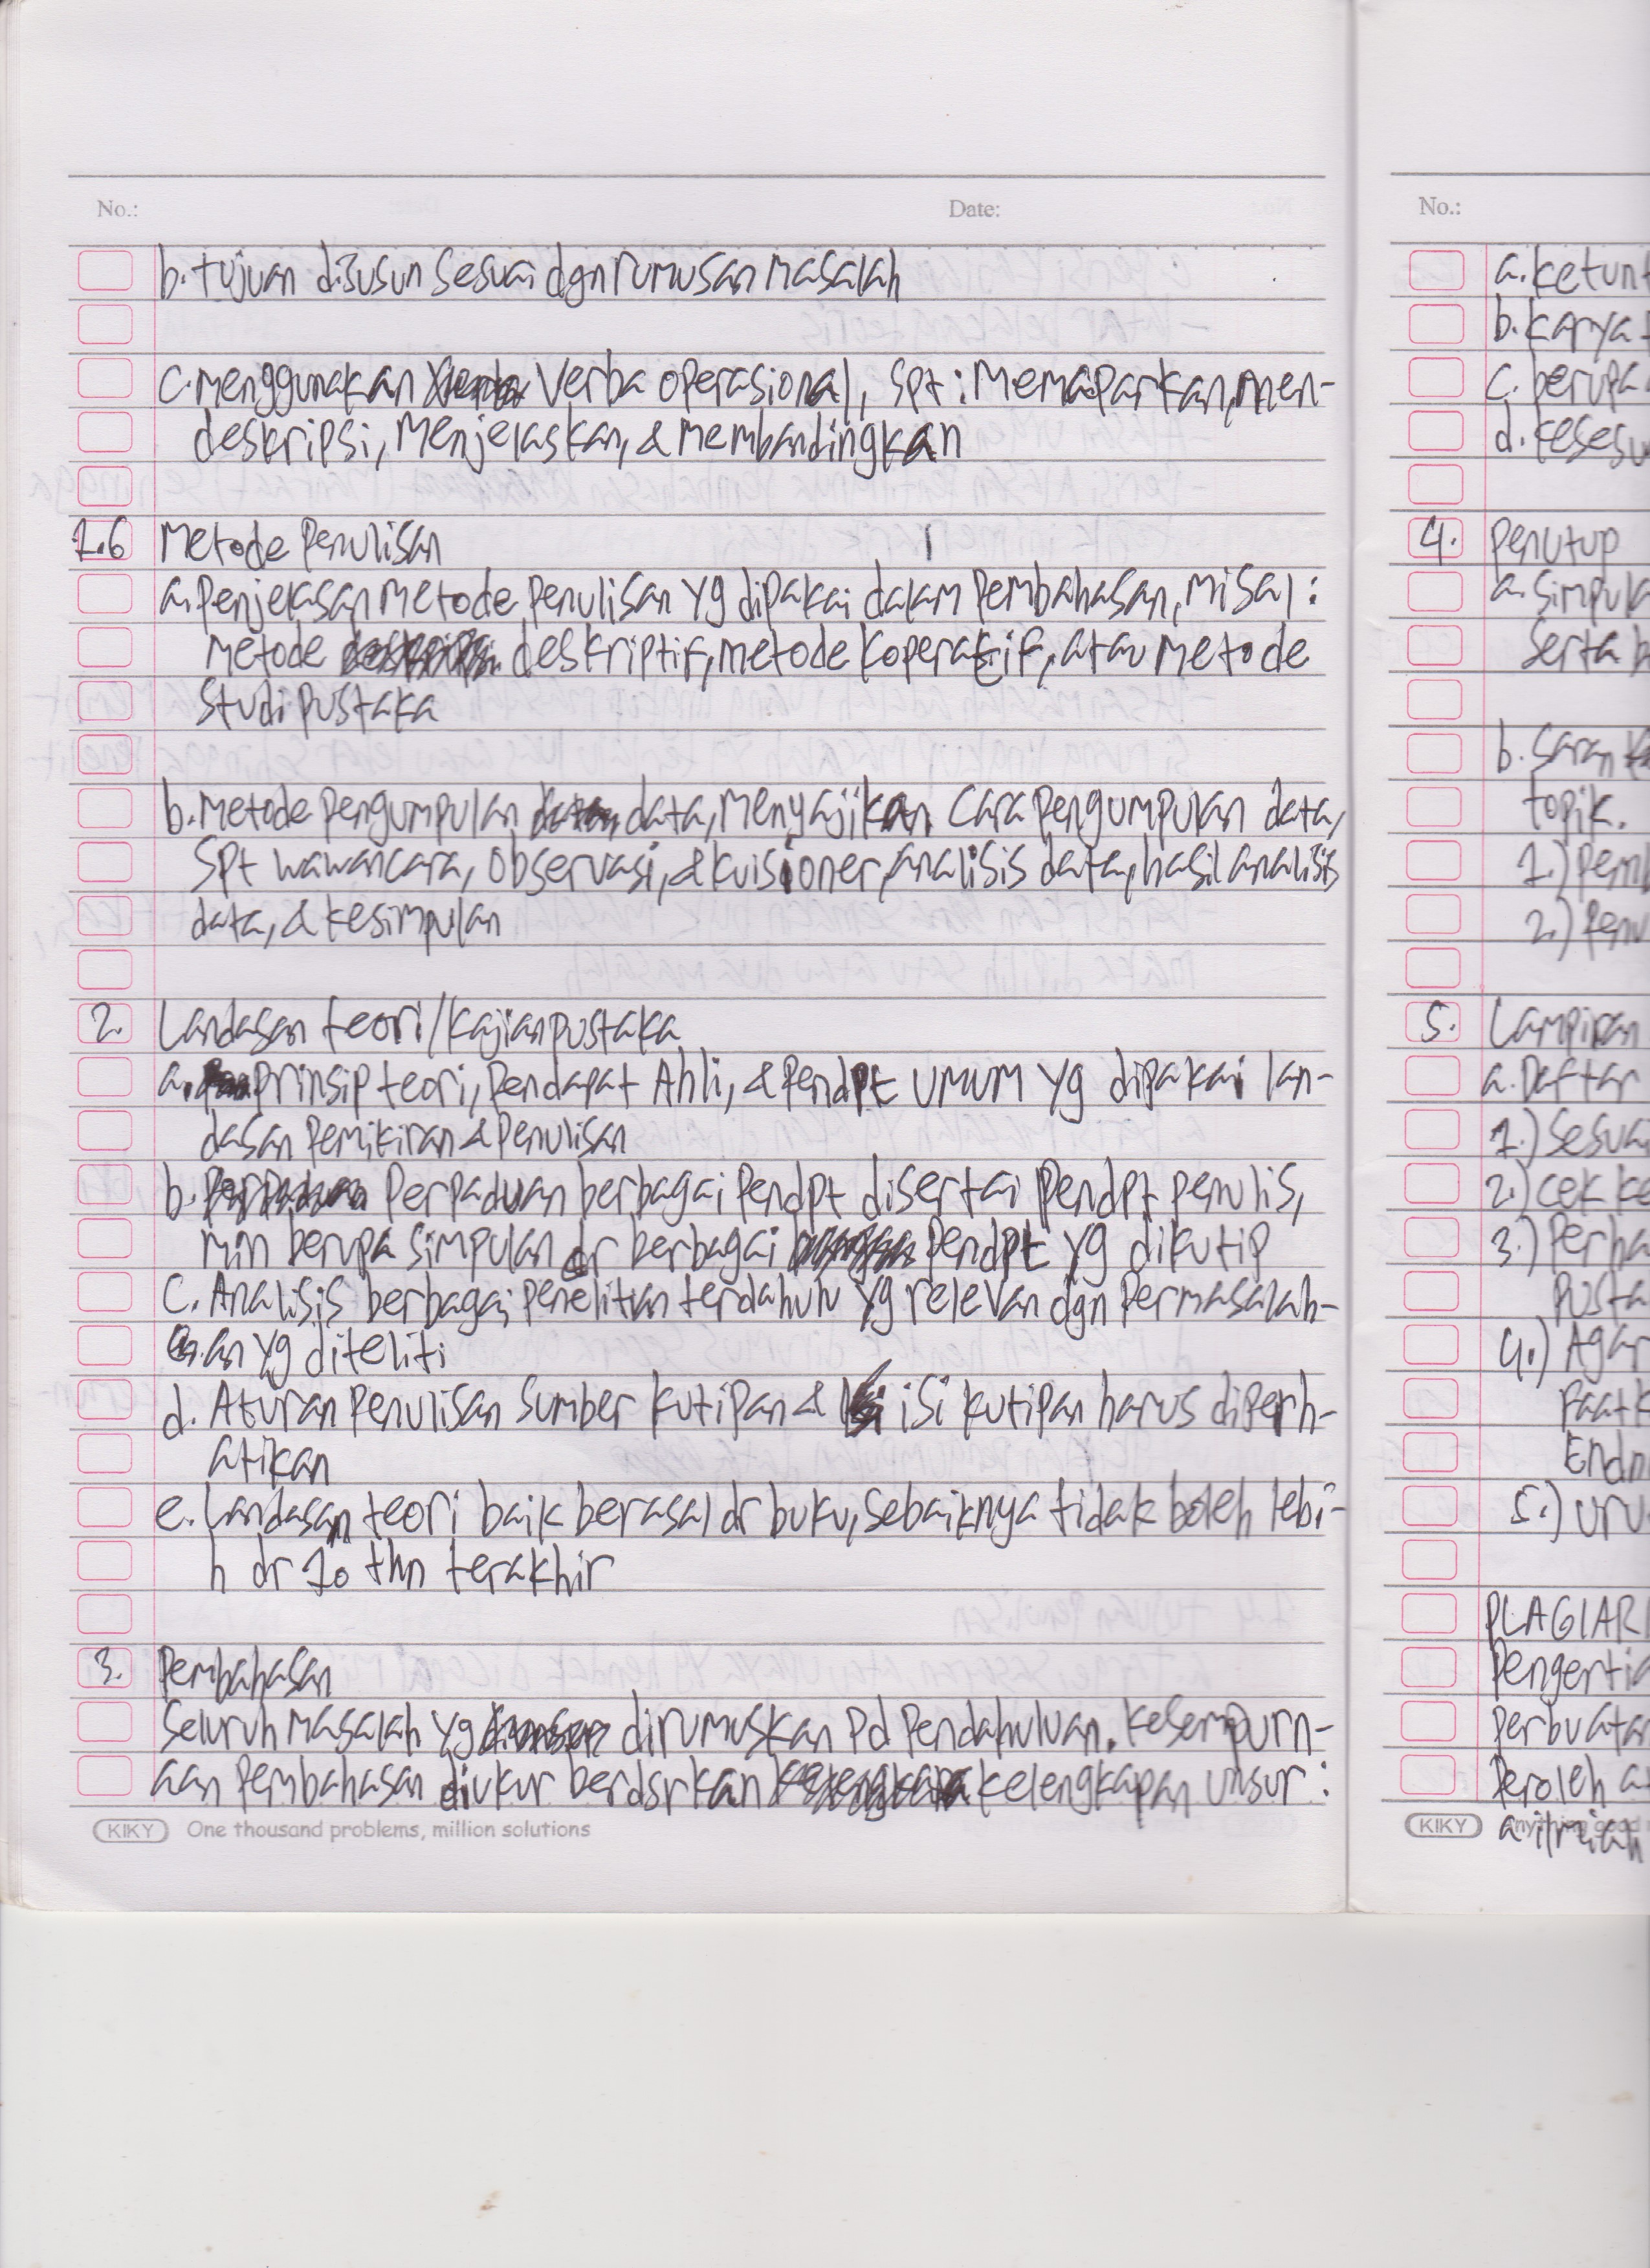 No.:
Date:
b. tujuan disusun sesuai dgn rumusan masalah
c. menggunakan verba operasional, spt : memaparkan, men-
deskripsi, menjelaskan, & membandingkan
1.6 Metode Penulisan
a. Penjelasan metode penulisan yg dipakai dalam pembahasan, misal :
metode deskriptif, metode koperatif, atau metode
studi pustaka
b. metode pengumpulan data, menyajikan cara pengumpulan data,
spt wawancara, observasi, & kuisioner, analisis data, hasil analisis
data, & kesimpulan
2. Landasan teori/kajian pustaka
a. prinsip teori, pendapat Ahli, & pendpt umum yg dipakai lan-
dasan pemikiran & penulisan
b. Perpaduan berbagai pendpt disertai pendpt penulis,
min berupa simpulan dr berbagai pendpt yg dikutip
c. Analisis berbagai penelitian terdahulu yg relevan dgn permasalah-
an yg diteliti
d. Aturan penulisan sumber kutipan & isi kutipan harus diperh-
atikan
e. Landasan teori baik berasal dr buku, sebaiknya tidak boleh lebi-
h dr 10 thn terakhir
3. Pembahasan
Seluruh masalah yg dirumuskan pd pendahuluan. Kesempurn-
aan pembahasan diukur berdsrkan kelengkapan unsur :
KIKY One thousand problems, million solutions
No.:
a. ketunt
b. karya
c. berupa
d. keses
4. Penutup
a. simpula
serta b
b. saran
topik.
1.) pemb
2.) penu
5. Lampiran
a. Daftar
1.) sesuai
2.) cek ke
3.) Perha
pusta
4.) Agar
faatk
Endn
5.) uru
PLAGIAR
Pengertia
perbuatan
peroleh
a. ilmiah
KIKY Anything good